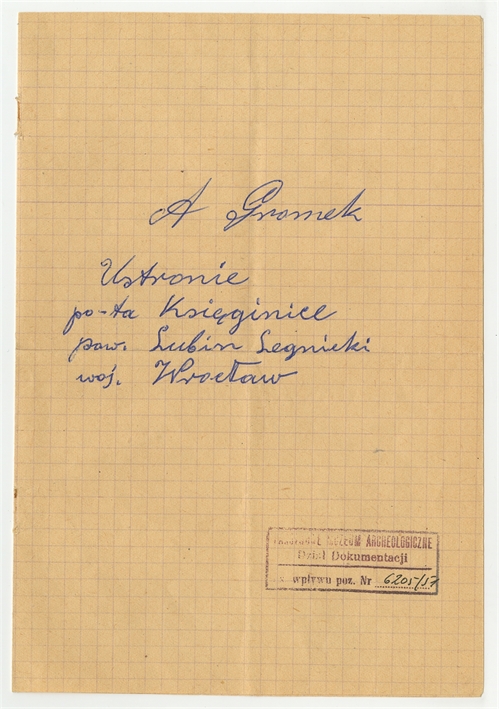 A Gromek
Ustronie
po-ta Księginice
pow. Lubin Legnicki
woj. Wrocław
MUZEUM ARCHEOLOGICZNE
Dział Dokumentacji
wpływu poz. Nr 6205/57